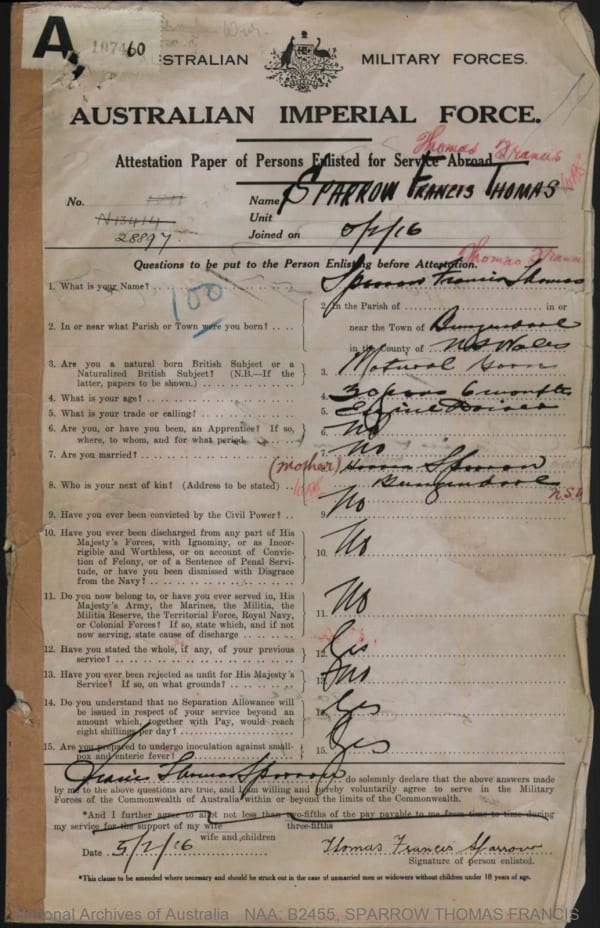 A
107460
AUSTRALIAN MILITARY FORCES.
AUSTRALIAN IMPERIAL FORCE.
Attestation Paper of Persons Enlisted for Service Abroad
Thomas Francis
No. Name SPARROW FRANCIS THOMAS
N13414 Unit
28897 Joined on 5/2/16
Questions to be put to the Person Enlisting before Attestation.
Thomas Francis
1. What is your Name? Sparrow Francis Thomas
100
2. In or near what Parish or Town were you born?
2. In the Parish of in or
near the Town of Bungendore
in the County of N S Wales
3. Are you a natural born British Subject or a
Naturalized British Subject? (N.B.—If the
latter, papers to be shown.) 3. Natural born
4. What is your age? 4. 30 years 6 months
5. What is your trade or calling? 5. Engine Driver
6. Are you, or have you been, an Apprentice? If so,
where, to whom, and for what period. 6. No
7. Are you married? 7. No
8. Who is your next of kin? (Address to be stated)
(mother) Sparrow
Bungendore N.S.W
9. Have you ever been convicted by the Civil Power? 9. No
10. Have you ever been discharged from any part of His
Majesty's Forces, with Ignominy, or as Incor-
rigible and Worthless, or on account of Convic-
tion of Felony, or of a Sentence of Penal Servi-
tude, or have you been dismissed with Disgrace
from the Navy? 10. No
11. Do you now belong to, or have you ever served in, His
Majesty's Army, the Marines, the Militia, the
Militia Reserve, the Territorial Force, Royal Navy,
or Colonial Forces? If so, state which, and if not
now serving, state cause of discharge 11. No
12. Have you stated the whole, if any, of your previous
service? 12. Yes
13. Have you ever been rejected as unfit for His Majesty's
Service? If so, on what grounds? 13. No
14. Do you understand that no Separation Allowance will
be issued in respect of your service beyond an
amount which, together with Pay, would reach
eight shillings per day? 14. Yes
15. Are you prepared to undergo inoculation against small-
pox and enteric fever? 15. Yes
I, Francis Thomas Sparrow do solemnly declare that the above answers made
by me to the above questions are true, and I am willing and hereby voluntarily agree to serve in the Military
Forces of the Commonwealth of Australia within or beyond the limits of the Commonwealth.
*And I further agree to allot not less than two-fifths of the pay payable to me from time to time during
my service for the support of my wife three-fifths
wife and children
Date 5/2/16 Thomas Francis Sparrow
Signature of person enlisted.
*This clause to be amended where necessary and should be struck out in the case of unmarried men or widowers without children under 18 years of age.
National Archives of Australia NAA: B2455, SPARROW THOMAS FRANCIS